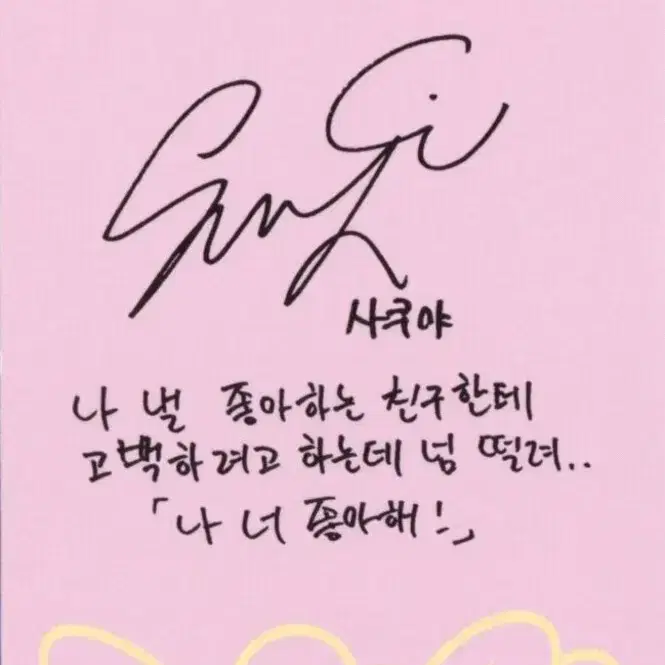 사쿠야
나 낼 좋아하는 친구한테
고백하려고 하는데 넘 떨려..
「나 너 좋아해!」